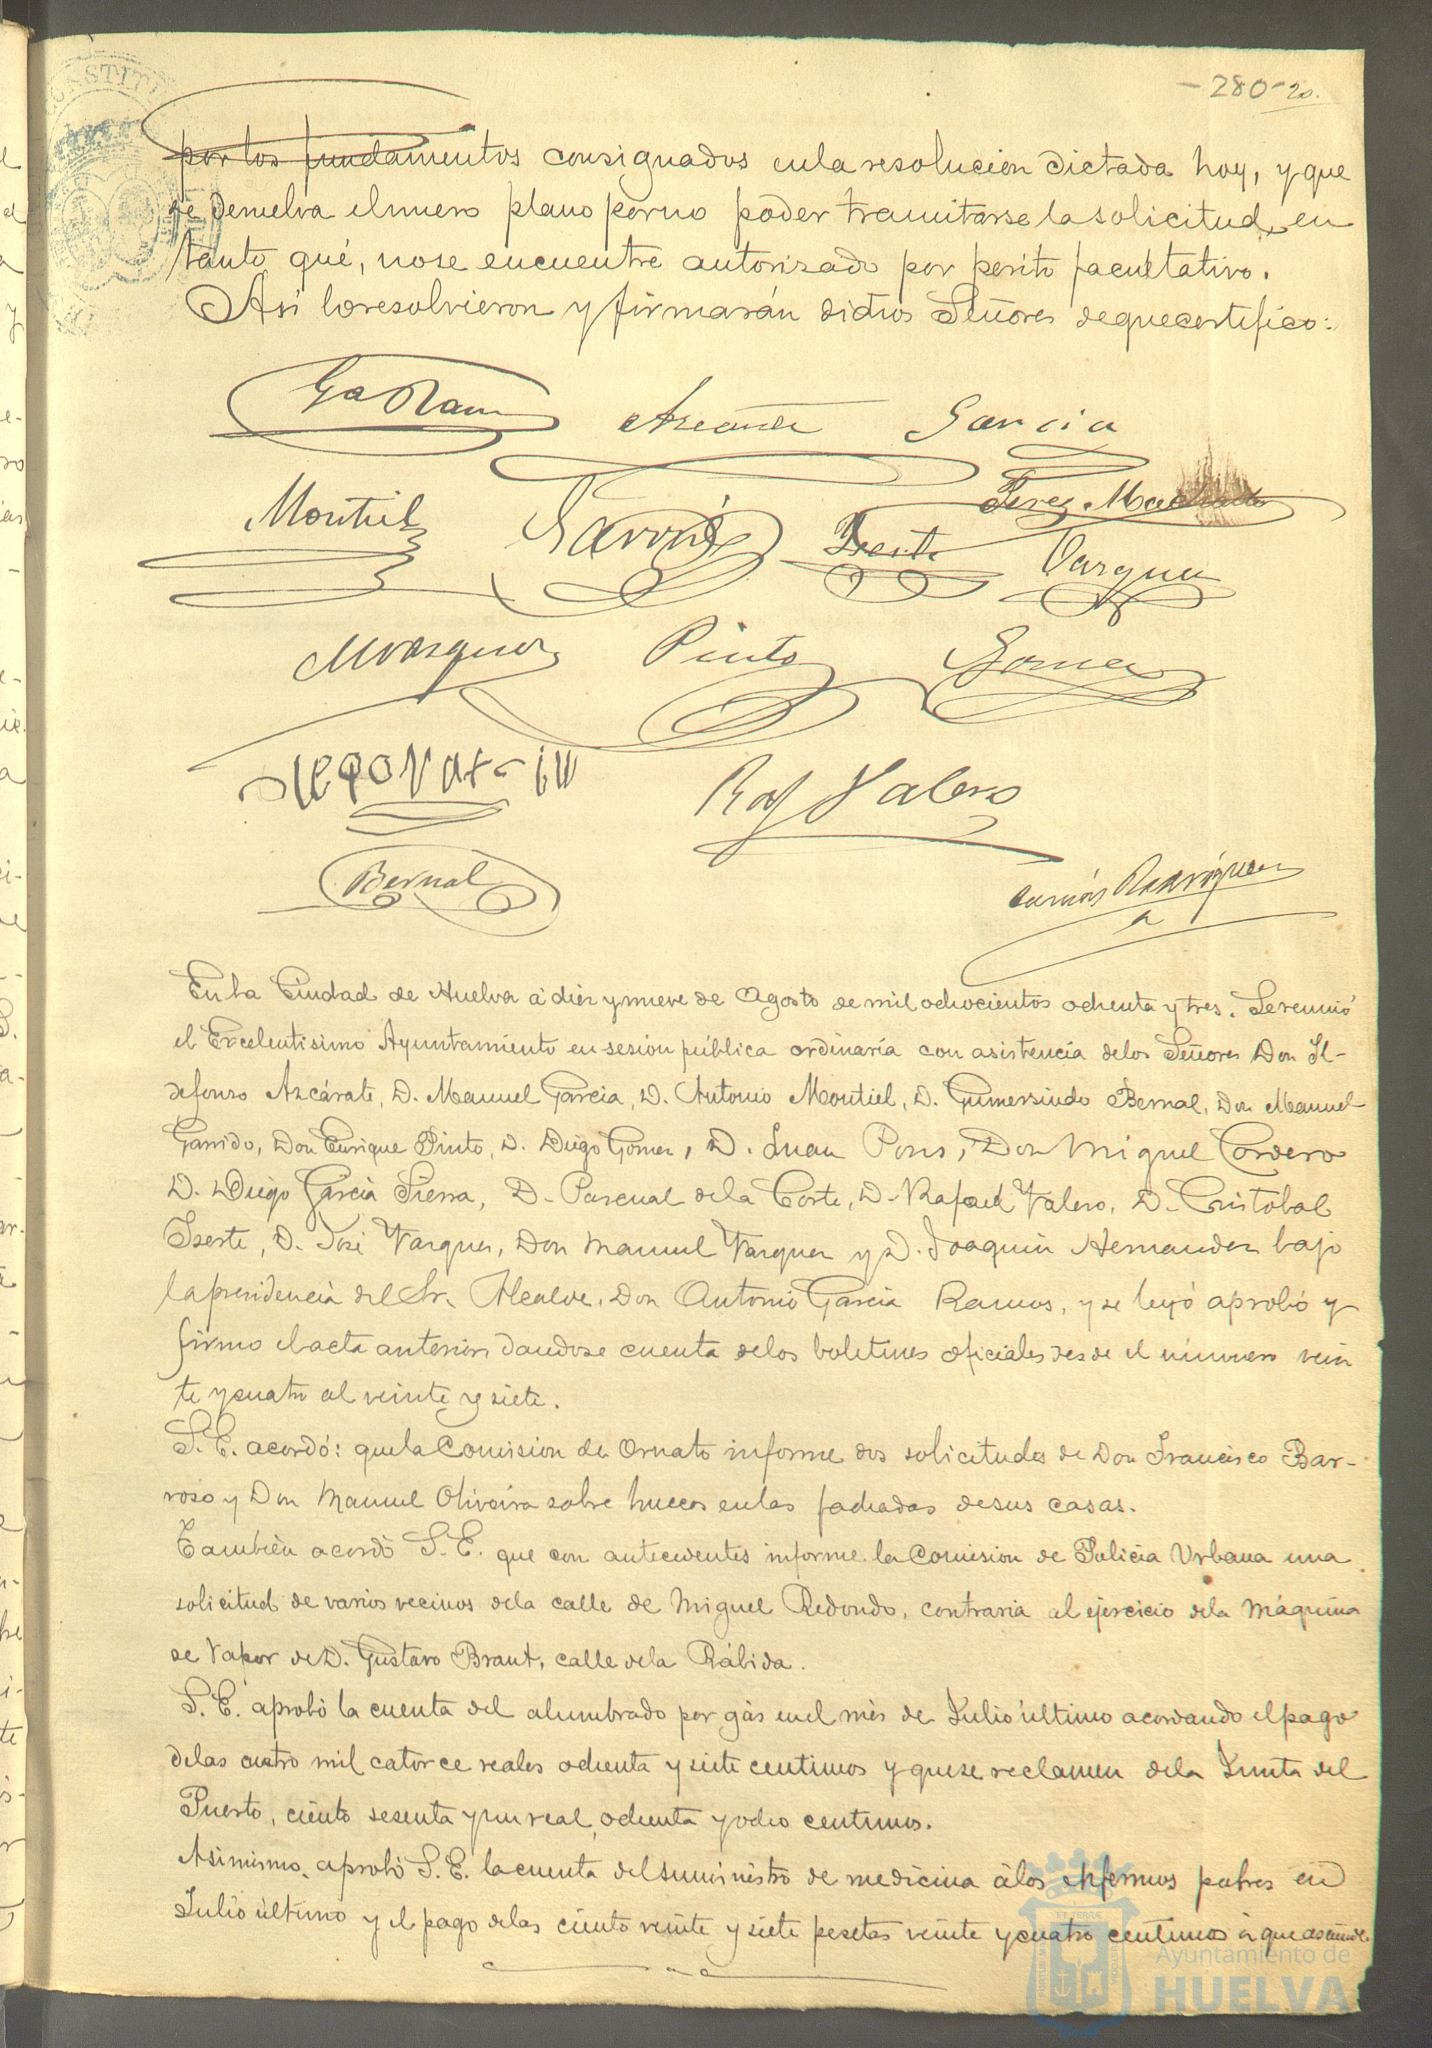 -280- 20.
por los fundamentos consignados en la resolución dictada hoy, y que
se devuelva el nuevo plano por no poder tramitarse la solicitud, en
tanto qué, no se encuentre autorizado por perito facultativo.
Así lo resolvieron y firmarán dichos Señores de que certifico:
Ga Ram
Azcárate García
Pérez Machado
Montiel Garrido Iserte Vargues
M Vasquez Pinto Gomez
Raf Valero
Bernal
Rodríguez
En la Ciudad de Huelva á diez y nueve de Agosto de mil ochocientos ochenta y tres. Se reunió
el Excelentísimo Ayuntamiento en sesión pública ordinaria con asistencia de los Señores Don Il-
defonso Azcárate, D. Manuel García, D. Antonio Montiel, D. Gumersindo Bernal, Don Manuel
Garrido, Don Enrique Pinto, D. Diego Gomez, D. Juan Pons, Don Miguel Cordero
D. Diego García Sierra, D. Pascual de la Corte, D. Rafael Valero, D. Cristóbal
Iserte, D. José Vargues, Don Manuel Vazquez y D. Joaquin Hernandez bajo
la presidencia del Sr. Alcalde, Don Antonio García Ramos, y se leyó aprobó y
firmo el acta anterior dandose cuenta de los boletines oficiales desde el número vein
te y cuatro al veinte y siete.
S. E. acordó: que la Comision de Ornato informe dos solicitudes de Don Francisco Bar-
roso y Don Manuel Oliveira sobre huecos en las fachadas de sus casas.
También acordó S. E. que con antecedentes informe la Comision de Policía Urbana una
solicitud de varios vecinos de la calle de Miguel Redondo, contraria al ejercicio de la máquina
de Vapor de D. Gustavo Braut, calle de la Rábida.
S. E. aprobó la cuenta del alumbrado por gás en el més de Julio último acordando el pago
de las cuatro mil catorce reales ochenta y siete centimos y que se reclamen de la Junta del
Puerto, ciento sesenta y un real, ochenta y ocho centimos.
Asimismo, aprobó S. E. la cuenta del suministro de medicina á los enfermos pobres en
Julio último y el pago de las ciento veinte y siete pesetas veinte y cuatro centimos á que asciende.
Ayuntamiento de
HUELVA